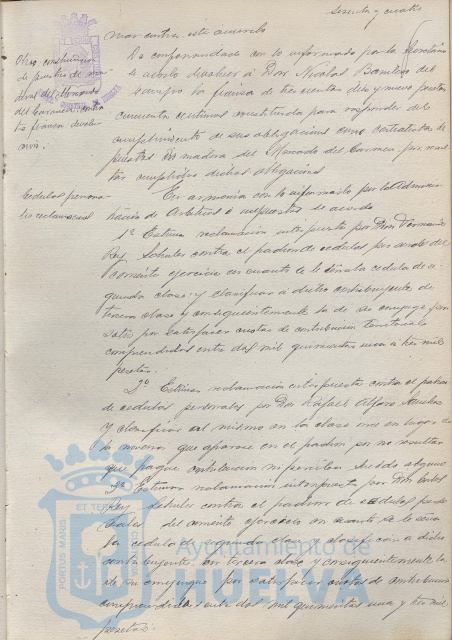 sesenta y cuatro
mar contra este acuerdo
Otra construcción
de puestos de ma
dera del Mercado
del Carmen
fianza devolu
De conformidad con lo informado por la
se acordó devolver a Don Nicolas Bautista del
Campo la fianza de trescientas diez y nueve pesetas
cincuenta céntimos constituida para responder del
cumplimiento de sus obligaciones como contratista de
puestos de madera del Mercado del Carmen por
obligaciones
Cedulas persona
les reclamaciones
En armonia con lo informado por la Adminis
tración de Arbitrios é impuestos se acordó
1º Estimar reclamación interpuesta por Don Fernando
Rey Sohules contra el padron de cedulas personales del
corriente ejercicio en cuanto se le señala cedula de se
gunda clase y clasificar a dicho contribuyente de
tercera clase y consiguientemente la de su conyuge
por satisfacer cuotas de contribución territorial
comprendidas entre dos mil quinientas una a tres mil
pesetas.
2º Estimar reclamación interpuesta contra el padron
de cedulas personales por Don Rafael Alfaro
y clasificar al mismo en la clase en lugar de
la novena que aparece en el padron por no resultar
que pague contribución ni perciba sueldo alguno
3º Estimar reclamación interpuesta por Don Carlos
Rey Sohules contra el padron de cedulas perso
nales del corriente ejercicio en cuanto se le señala
la cedula de segunda clase y clasificar a dicho
contribuyente en tercera clase y consiguientemente la
de su conyuge por satisfacer cuotas de contribución
comprendidas entre dos mil quinientas una y tres mil
pesetas.
PORTUS MARIS
ET TERRAE
Ayuntamiento de
HUELVA